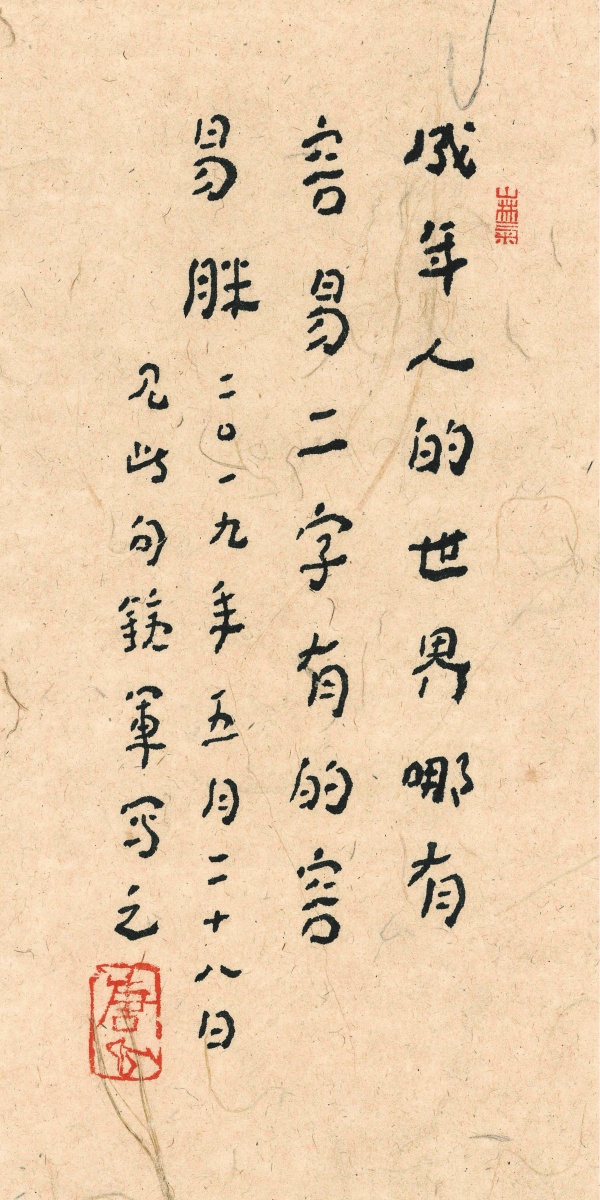 山林氣
成年人的世界哪有
容易二字有的容
易胖
二〇一九年五月二十八日
见此句軍写之
唐